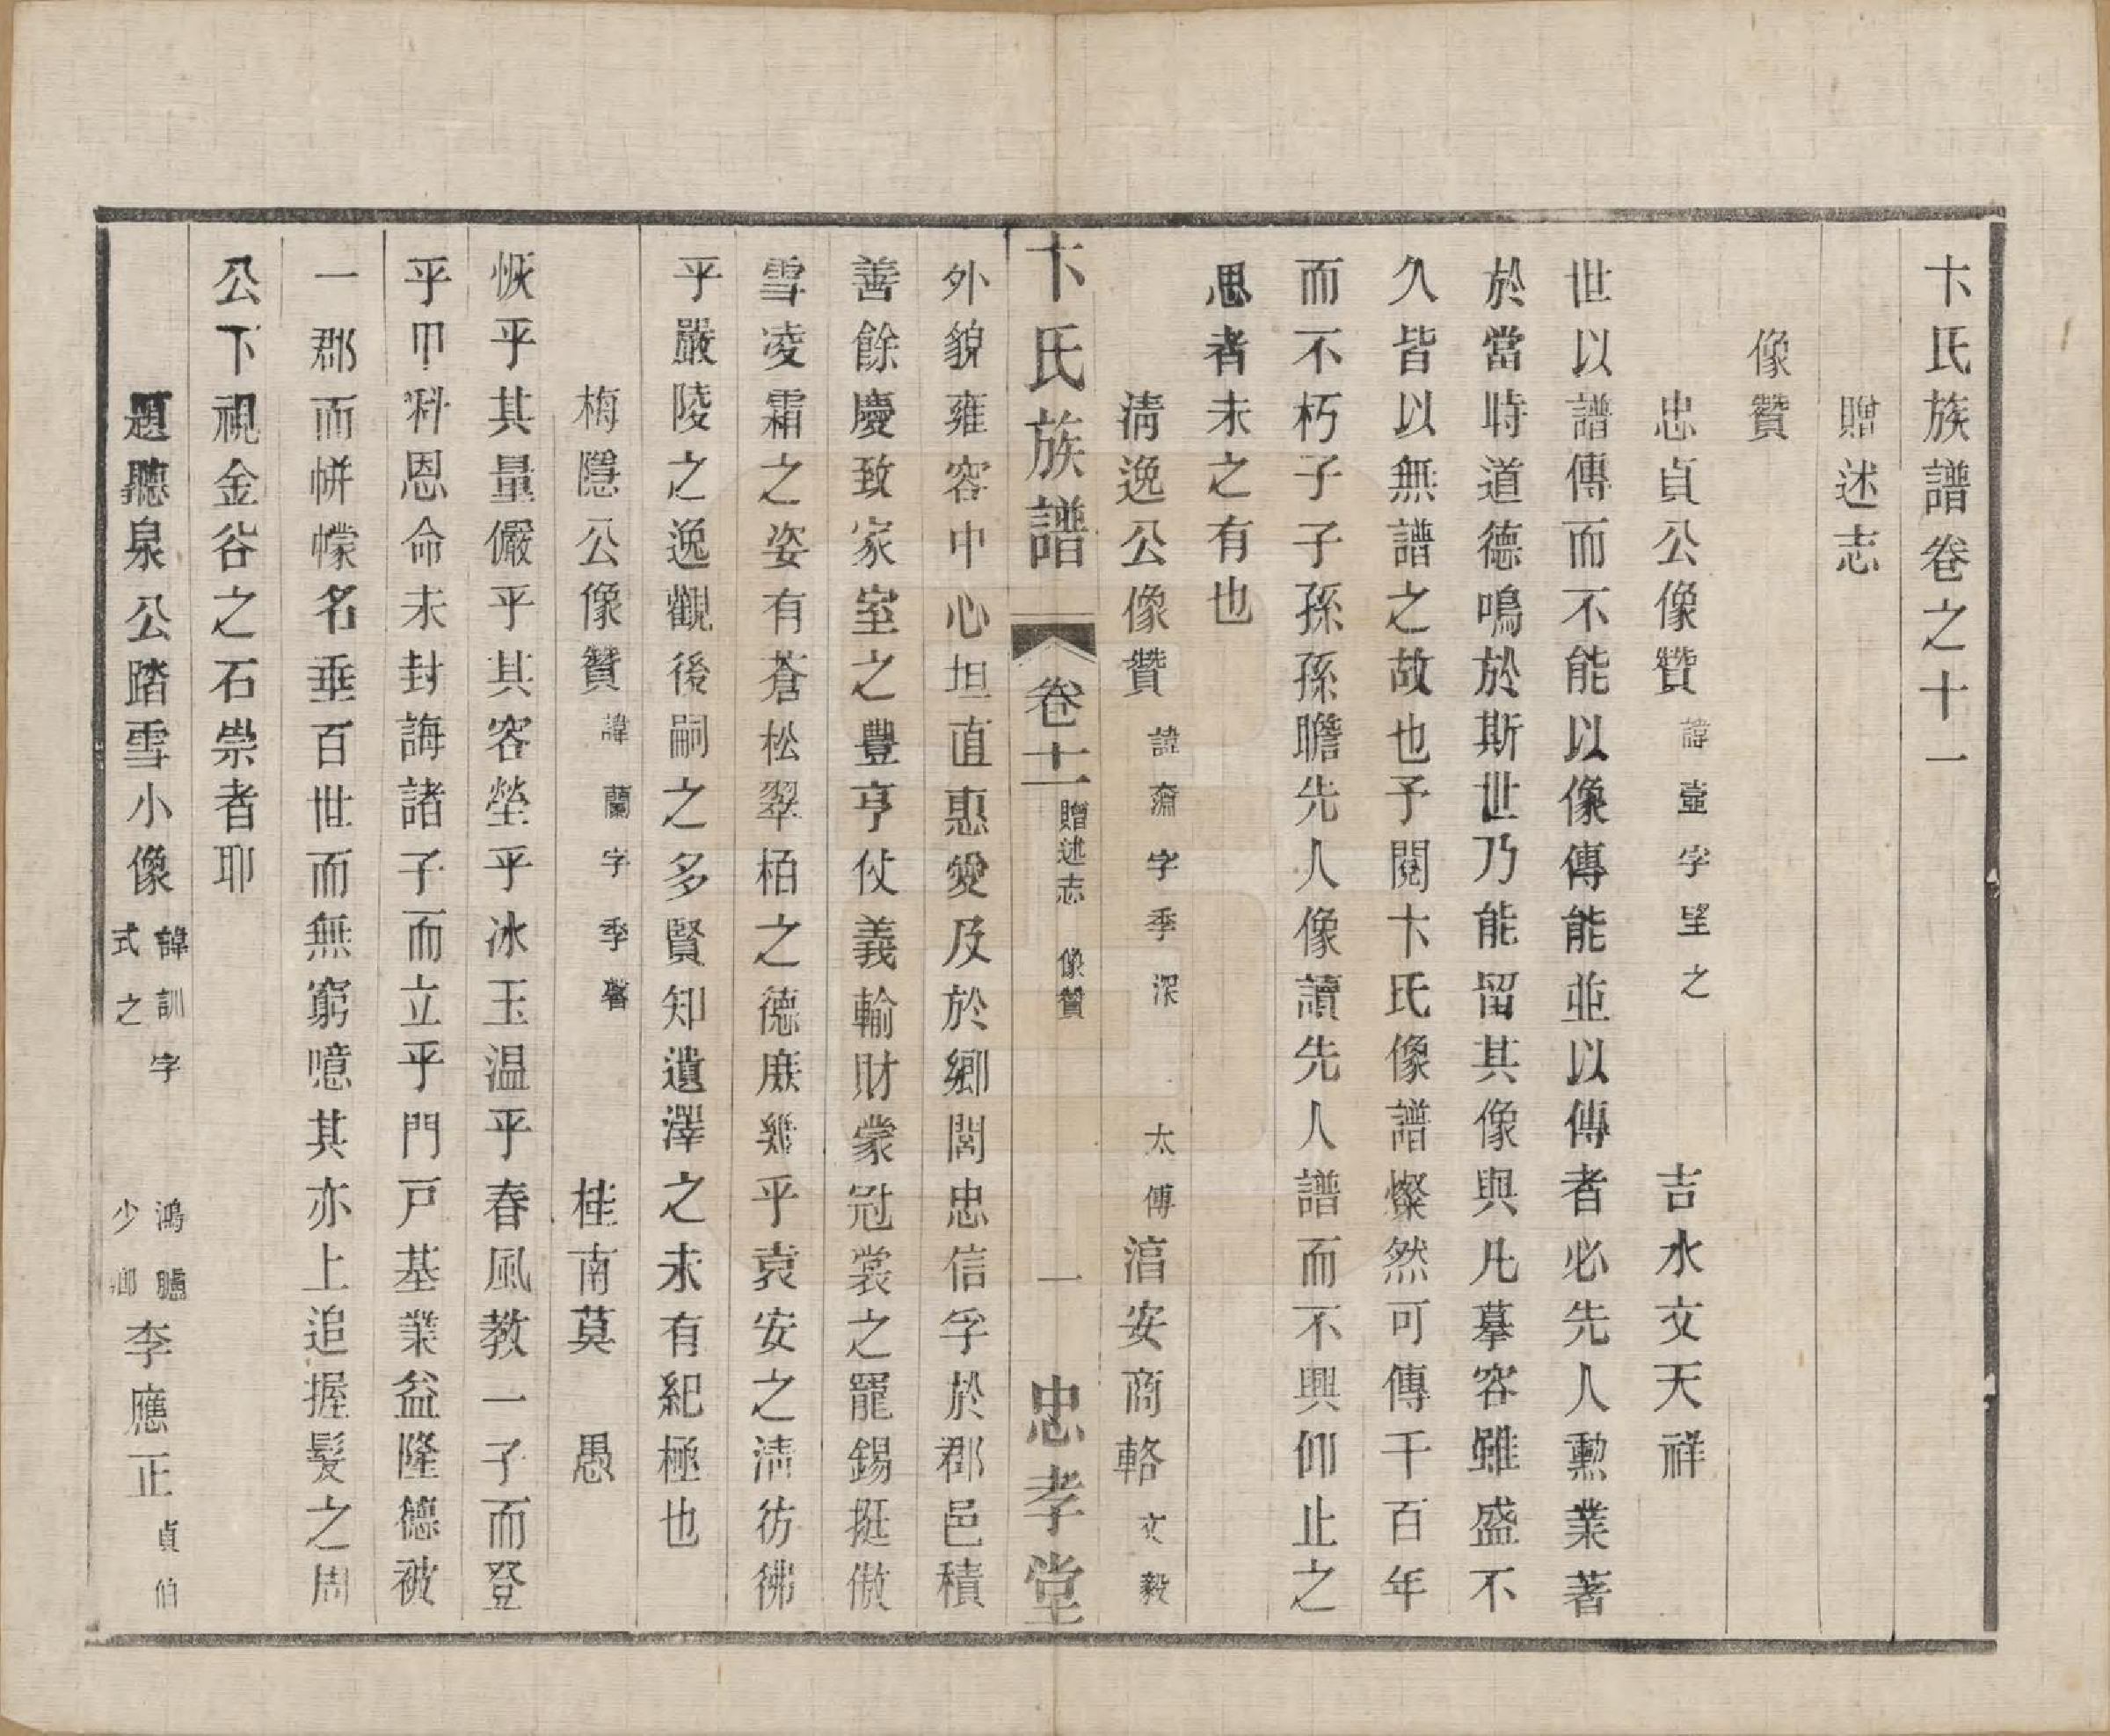 卞氏族譜卷之十一
贈述志
像贊
忠貞公像贊 諱壼字望之 吉水文天祥
世以譜傳而不能以像傳能並以傳者必先人勳業著
於當時道德鳴於斯世乃能留其像與凡摹容雖盛不
久皆以無譜之故也予閱卞氏像譜燦然可傳千百年
而不朽子子孫孫瞻先人像讀先人譜而不興仰止之
思者未之有也
清逸公像贊 諱齋字季深 太傅淯安商輅文毅
卞氏族譜 卷十一 贈述志 像贊 一 忠孝堂
外貌雍容中心坦直惠愛及於鄉閭忠信孚於郡邑積
善餘慶致家室之豐亨仗義輸財蒙冠裳之寵錫挺傲
雪凌霜之姿有蒼松翠栢之德庶幾乎袁安之淸彷彿
乎嚴陵之逸觀後嗣之多賢知遺澤之未有紀極也
梅隱公像贊 諱蘭字季馨 桂南莫 愚
恢乎其量儼乎其容瑩乎冰玉温乎春風教一子而登
乎甲科恩命未封誨諸子而立乎門戸基業益隆德被
一郡而帡幪名垂百世而無窮噫其亦上追握髮之周
公下視金谷之石崇者耶
題聽泉公踏雪小像 諱訓字式之 鴻臚少卿李應正貞伯